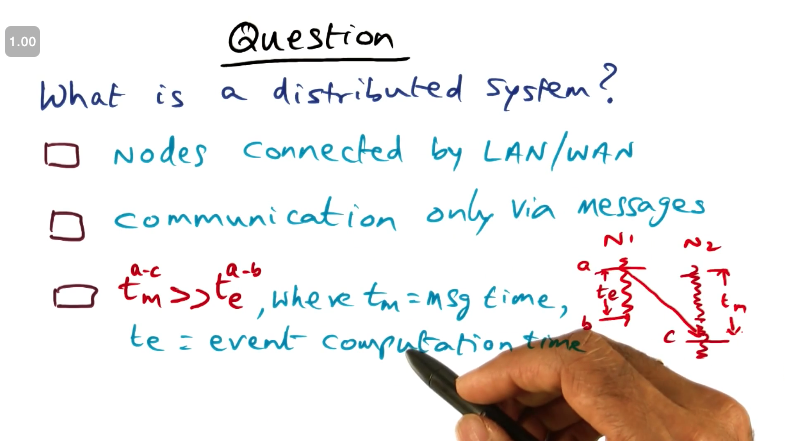 1.00
Question
What is a distributed system?
Nodes connected by LAN/WAN
communication only via messages
N1 N2
a-c a-b
tm >> te, where tm = msg time,
te = event computation time
a
te
b
tm
c